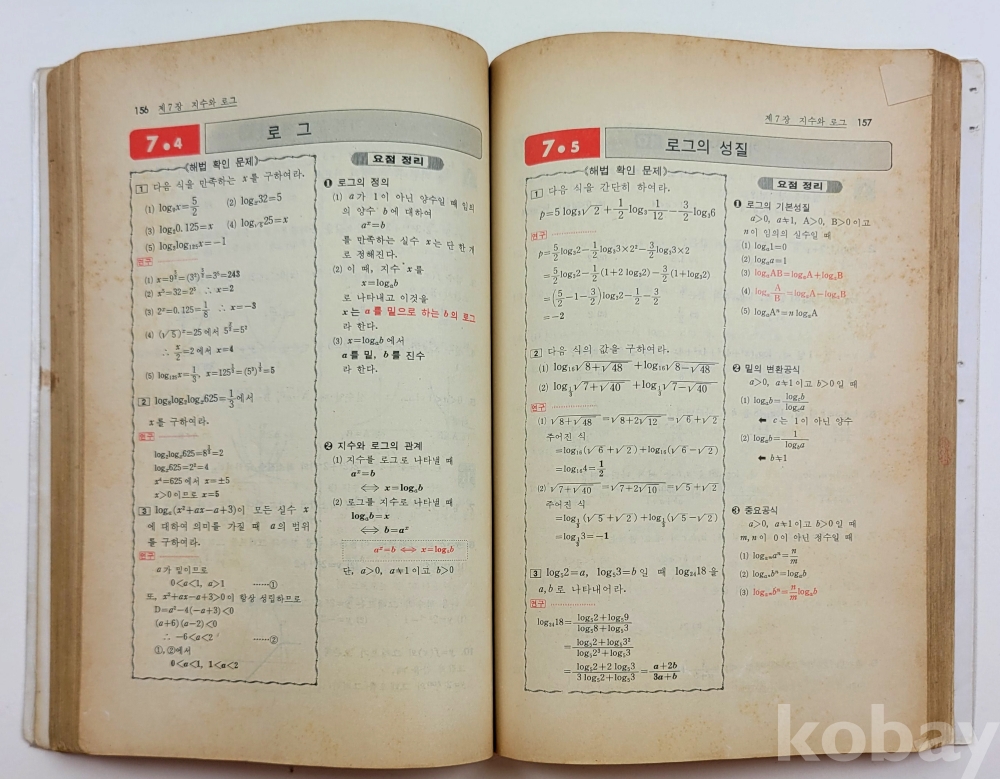 156 제7장 지수와 로그
7•4 로그
《해법 확인 문제》
1 다음 식을 만족하는 x를 구하여라.
(1) log₉x=5/2 (2) logₓ32=5
(3) log₂0.125=x (4) log√5 25=x
(5) log₃log₁₂₅x=−1
연구
(1) x=9^(5/2)=(3²)^(5/2)=3⁵=243
(2) x⁵=32=2⁵ ∴ x=2
(3) 2ˣ=0.125=1/8 ∴ x=−3
(4) (√5)ˣ=25에서 5^(x/2)=5²
∴ x/2=2에서 x=4
(5) log₁₂₅x=1/3, x=125^(1/3)=(5³)^(1/3)=5
2 log₈log₂logₓ625=1/3에서
x를 구하여라.
연구
log₂logₓ625=8^(1/3)=2
logₓ625=2²=4
x⁴=625에서 x=±5
x>0이므로 x=5
3 logₐ(x²+ax−a+3)이 모든 실수 x
에 대하여 의미를 가질 때 a의 범위
를 구하여라.
연구
a가 밑이므로
0<a<1, a>1 ……①
또, x²+ax−a+3>0이 항상 성립하므로
D=a²−4(−a+3)<0
(a+6)(a−2)<0
∴ −6<a<2 ……②
①,②에서
0<a<1, 1<a<2
요점 정리
❶ 로그의 정의
(1) a가 1이 아닌 양수일 때 임의
의 양수 b에 대하여
aˣ=b
를 만족하는 실수 x는 단 한개
로 정해진다.
(2) 이 때, 지수 x를
x=logₐb
로 나타내고 이것을
x는 a를 밑으로 하는 b의 로그
라 한다.
(3) x=logₐb에서
a를 밑, b를 진수
라 한다.
❷ 지수와 로그의 관계
(1) 지수를 로그로 나타낼 때
aˣ=b
⟺ x=logₐb
(2) 로그를 지수로 나타낼 때
logₐb=x
⟺ b=aˣ
aˣ=b ⟺ x=logₐb
단, a>0, a≠1이고 b>0
제7장 지수와 로그 157
7•5 로그의 성질
《해법 확인 문제》
1 다음 식을 간단히 하여라.
p=5 log₃√2+1/2 log₃ 1/12−3/2 log₃6
연구
p=5/2 log₃2−1/2 log₃3×2²−3/2 log₃3×2
=5/2 log₃2−1/2(1+2 log₃2)−3/2(1+log₃2)
=(5/2−1−3/2)log₃2−1/2−3/2
=−2
2 다음 식의 값을 구하여라.
(1) log₁₆√(8+√48)+log₁₆√(8−√48)
(2) log_(1/3)√(7+√40)+log_(1/3)√(7−√40)
연구
(1) √(8+√48)=√(8+2√12)=√6+√2
주어진 식
=log₁₆(√6+√2)+log₁₆(√6−√2)
=log₁₆4=1/2
(2) √(7+√40)=√(7+2√10)=√5+√2
주어진 식
=log_(1/3)(√5+√2)+log_(1/3)(√5−√2)
=log_(1/3)3=−1
3 log₅2=a, log₅3=b일 때 log₂₄18을
a,b로 나타내어라.
연구
log₂₄18=(log₅2+log₅9)/(log₅8+log₅3)
=(log₅2+log₅3²)/(log₅2³+log₅3)
=(log₅2+2 log₅3)/(3 log₅2+log₅3)=(a+2b)/(3a+b)
요점 정리
❶ 로그의 기본성질
a>0, a≠1, A>0, B>0이고
n이 임의의 실수일 때
(1) logₐ1=0
(2) logₐa=1
(3) logₐAB=logₐA+logₐB
(4) logₐ A/B=logₐA−logₐB
(5) logₐAⁿ=n logₐA
❷ 밑의 변환공식
a>0, a≠1이고 b>0일 때
(1) logₐb=log_c b/log_c a
← c는 1이 아닌 양수
(2) logₐb=1/log_b a
← b≠1
❸ 중요공식
a>0, a≠1이고 b>0일 때
m,n이 0이 아닌 정수일 때
(1) log_(aᵐ)aⁿ=n/m
(2) log_(aⁿ)bⁿ=logₐb
(3) log_(aᵐ)bⁿ=n/m logₐb
kobay